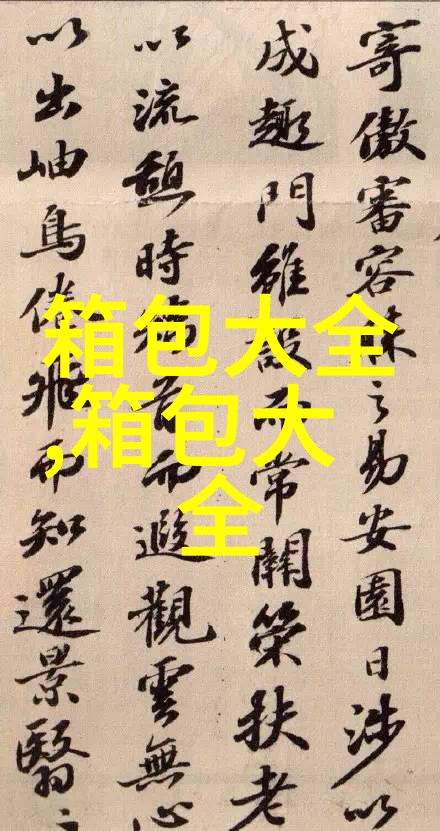 寄傲審容膝之易安園日涉以
成趣門雖設而常關策扶老
以流憩時矯首而遐觀雲無心
以出岫鳥倦飛而知還景翳
箱包大全
,箱包大
全